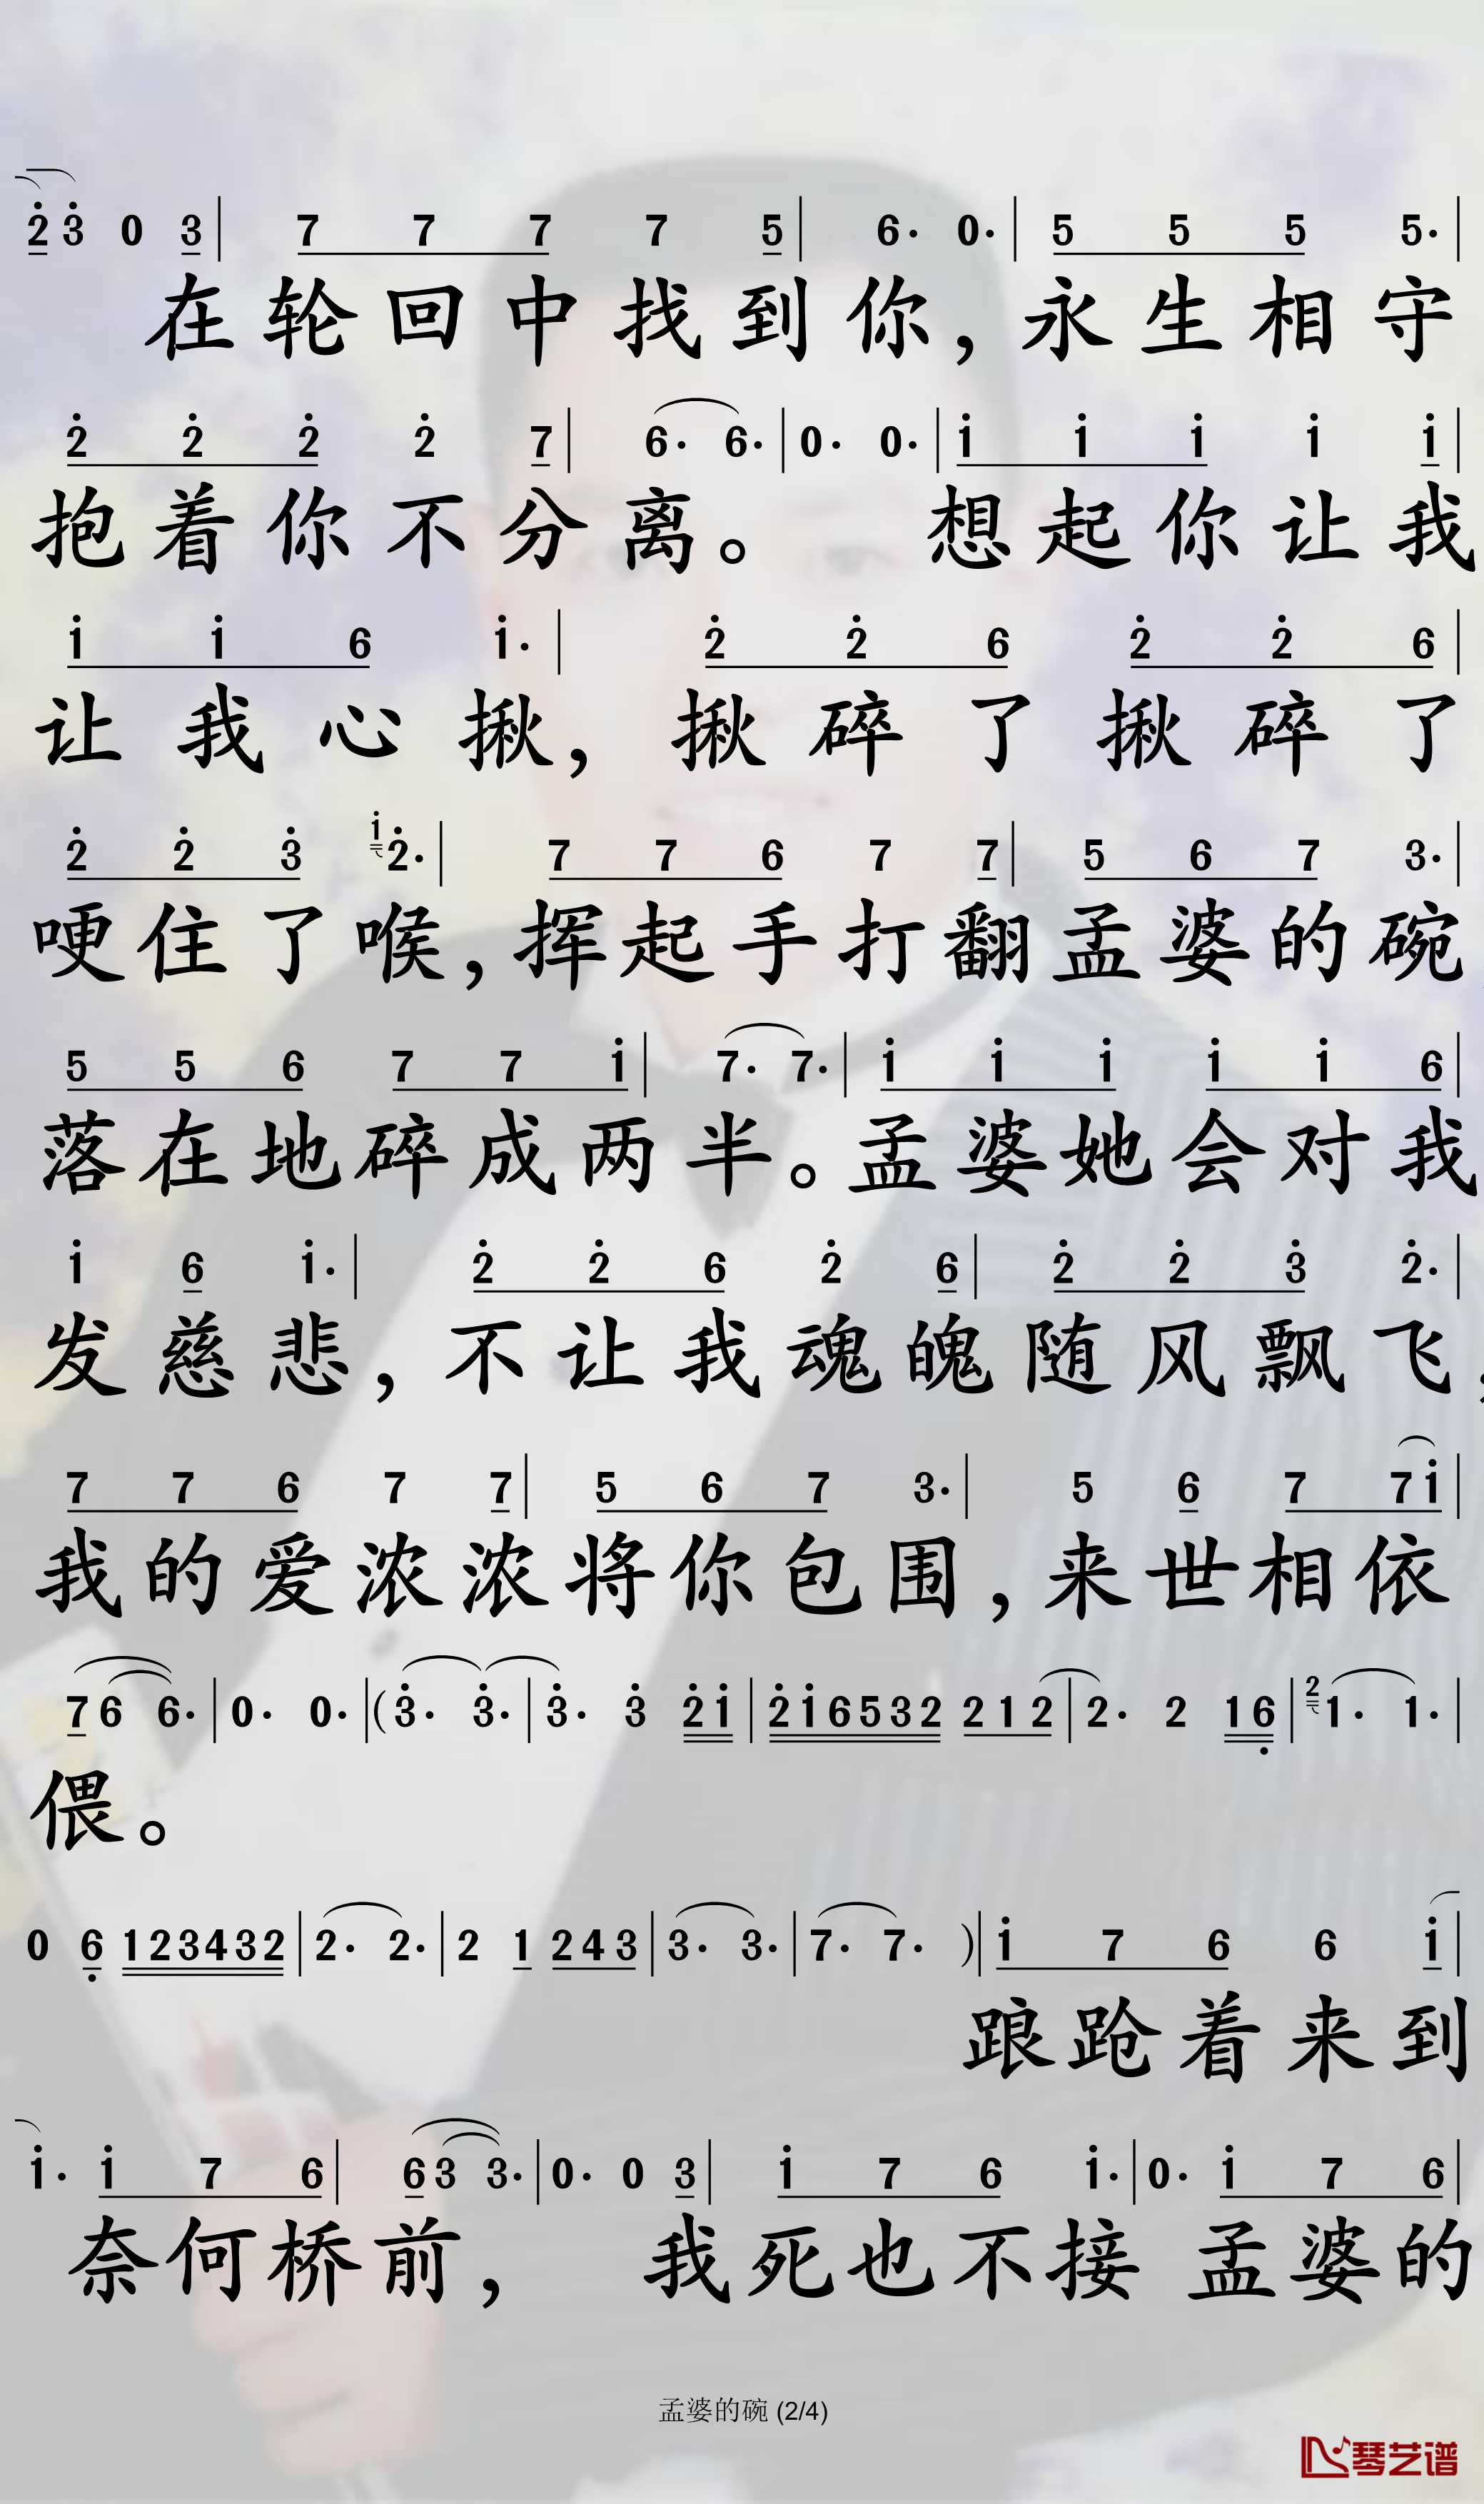 2̇ 3̇ 0 3 | 7 7 7 7 5 | 6· 0· | 5 5 5 5· |
在轮回中找到你，永生相守
2̇ 2̇ 2̇ 2̇ 7 | 6· 6· | 0· 0· | 1̇ 1̇ 1̇ 1̇ 1̇ |
抱着你不分离。 想起你让我
1̇ 1̇ 6 1̇· | 2̇ 2̇ 6 2̇ 2̇ 6 |
让我心揪，揪碎了揪碎了
2̇ 2̇ 3̇ 1̇ 2̇· | 7 7 6 7 7 | 5 6 7 3· |
哽住了喉，挥起手打翻孟婆的碗，
5 5 6 7 7 1̇ | 7· 7· | 1̇ 1̇ 1̇ 1̇ 1̇ 6 |
落在地碎成两半。孟婆她会对我
1̇ 6 1̇· | 2̇ 2̇ 6 2̇ 6 | 2̇ 2̇ 3̇ 2̇· |
发慈悲，不让我魂魄随风飘飞，
7 7 6 7 7 | 5 6 7 3· | 5 6 7 7 1̇ |
我的爱浓浓将你包围，来世相依
7 6 6· | 0· 0· | (3̇· 3̇· | 3̇· 3̇ 2̇ 1̇ | 2̇ 1̇ 6 5 3 2 2 1 2 | 2· 2 1 6̣ | 2 1· 1· |
偎。
0 6̣ 1 2 3 4 3 2 | 2· 2· | 2 1 2 4 3 | 3· 3· | 7· 7· ) | 1̇ 7 6 6 1̇ |
踉跄着来到
1̇· 1̇ 7 6 | 6 3 3· | 0· 0 3 | 1̇ 7 6 1̇· | 0· 1̇ 7 6 |
奈何桥前， 我死也不接 孟婆的
孟婆的碗 (2/4)
琴艺谱